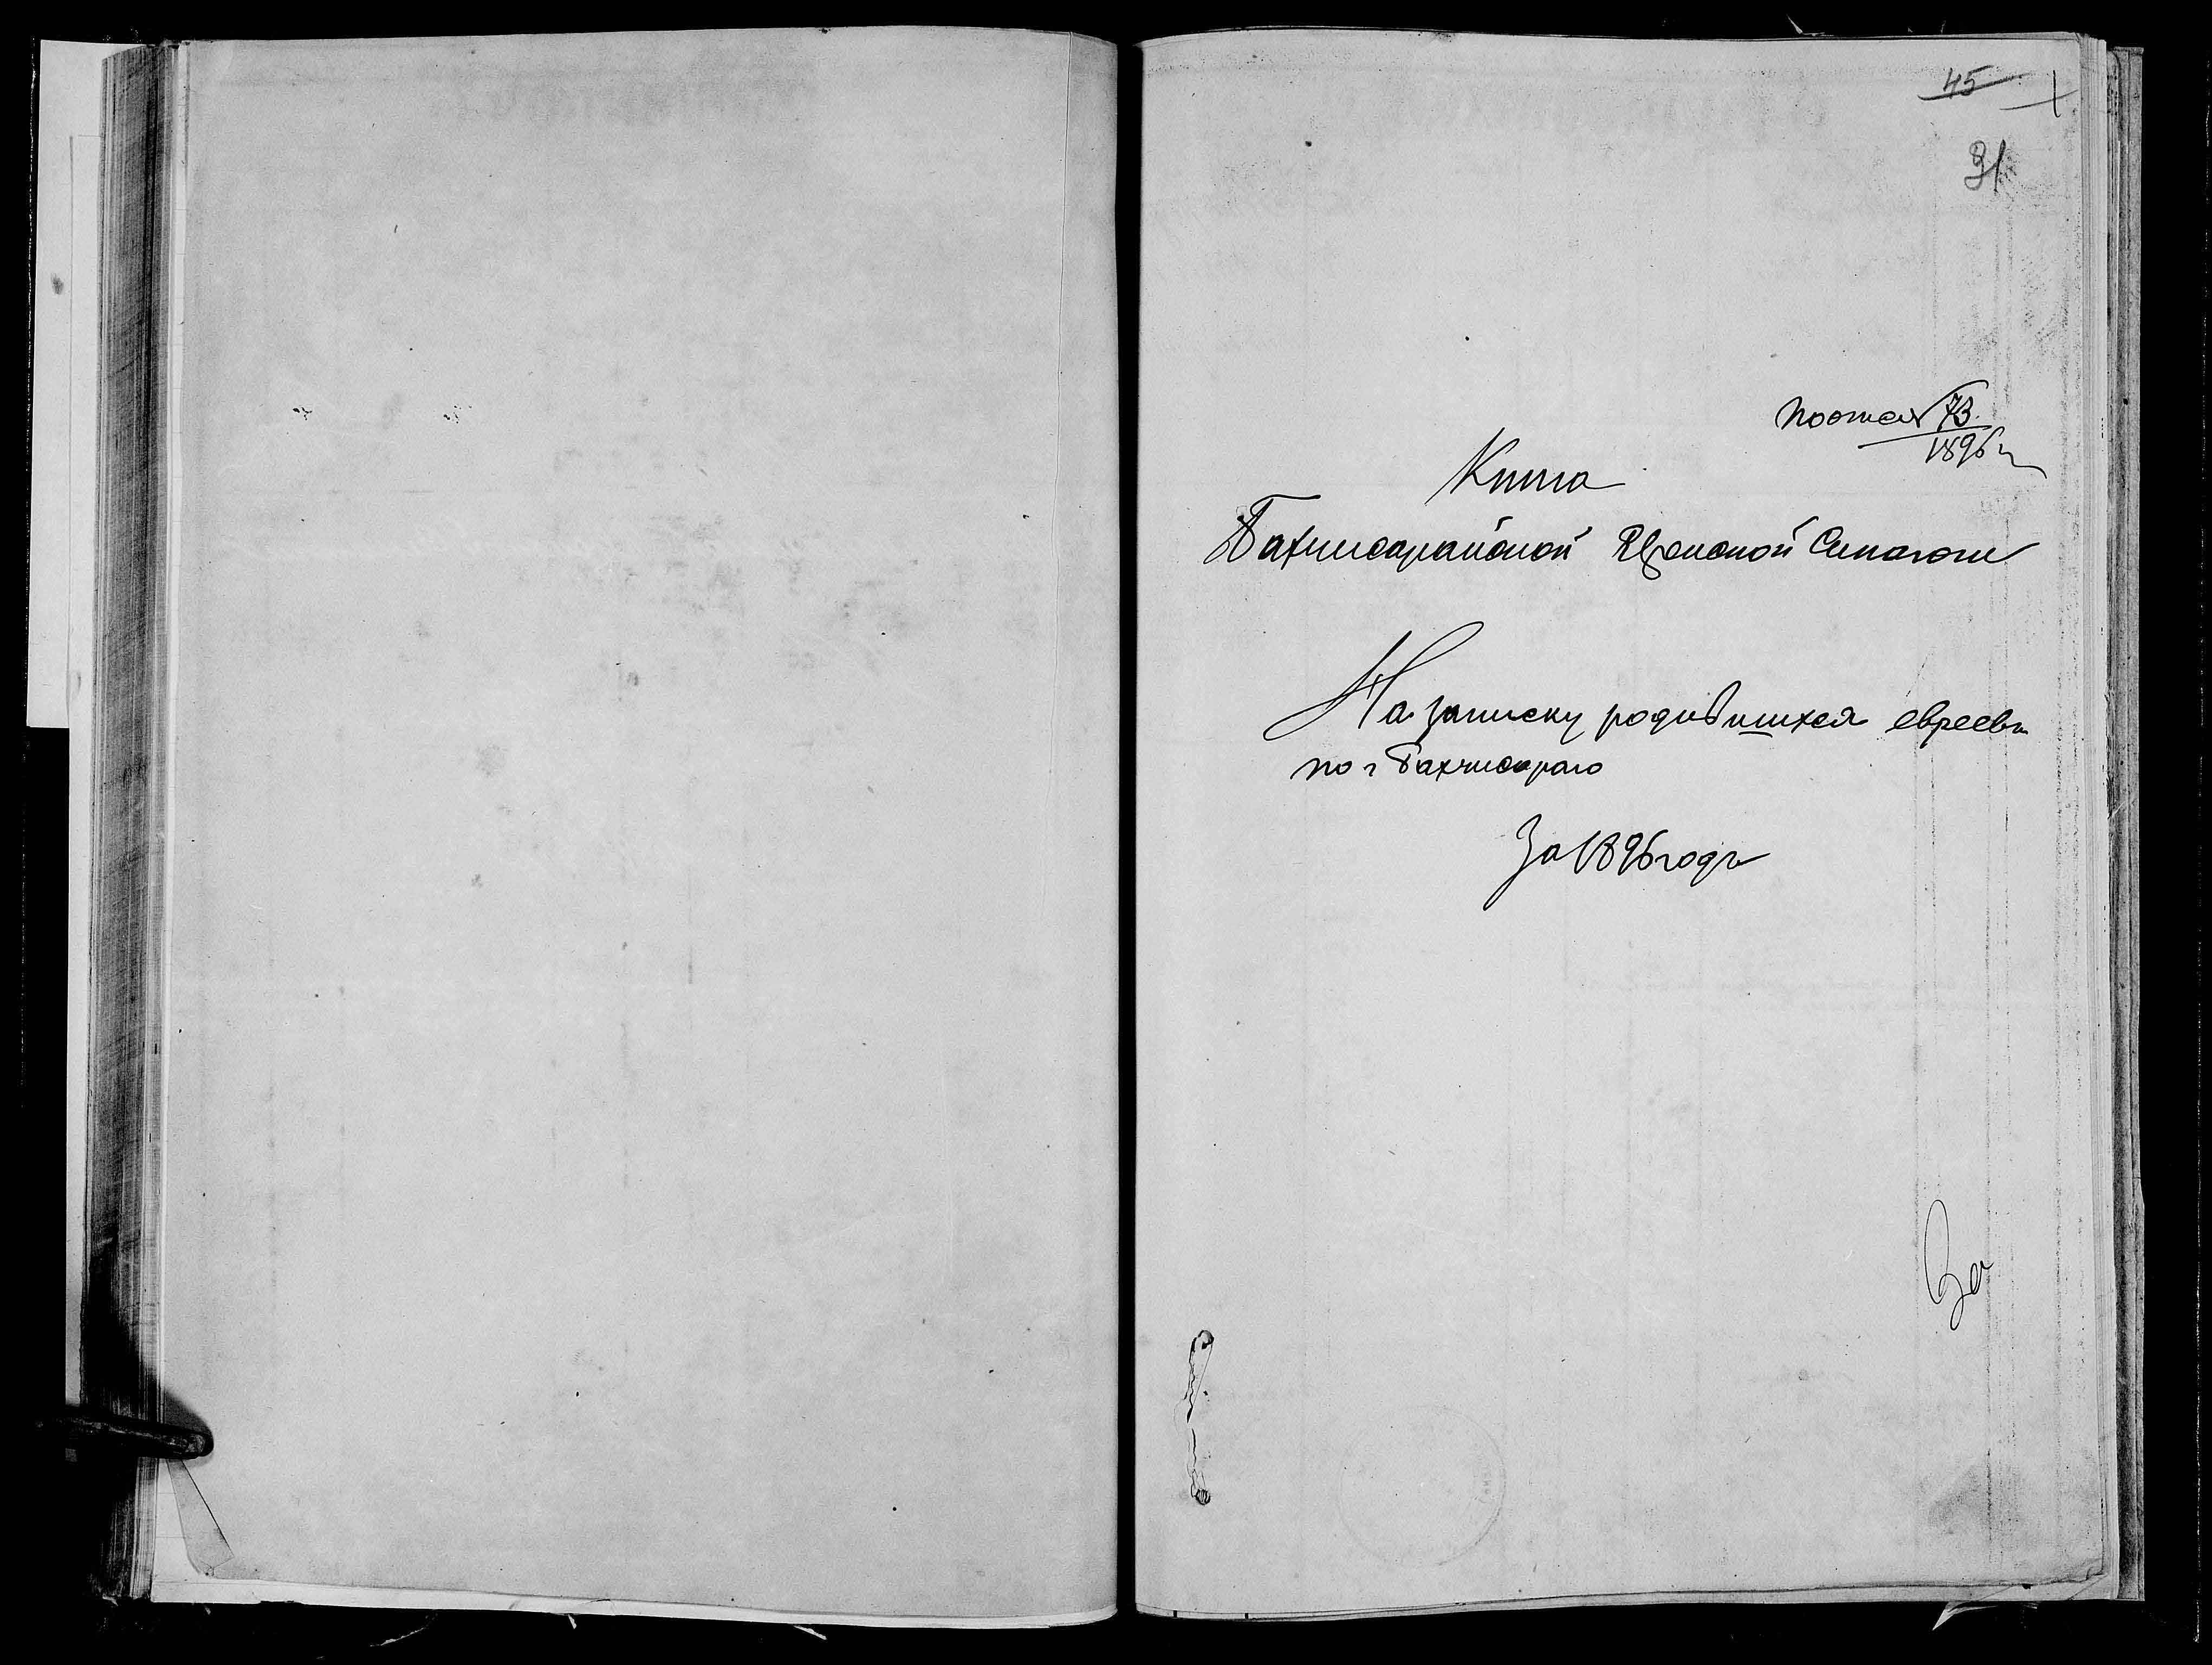 45
31
73
1896 г
Книга
Бахчисарайской Еврейской Синагоги
На записку родившихся евреевъ
по г Бахчисараю
За 1896 годъ
За